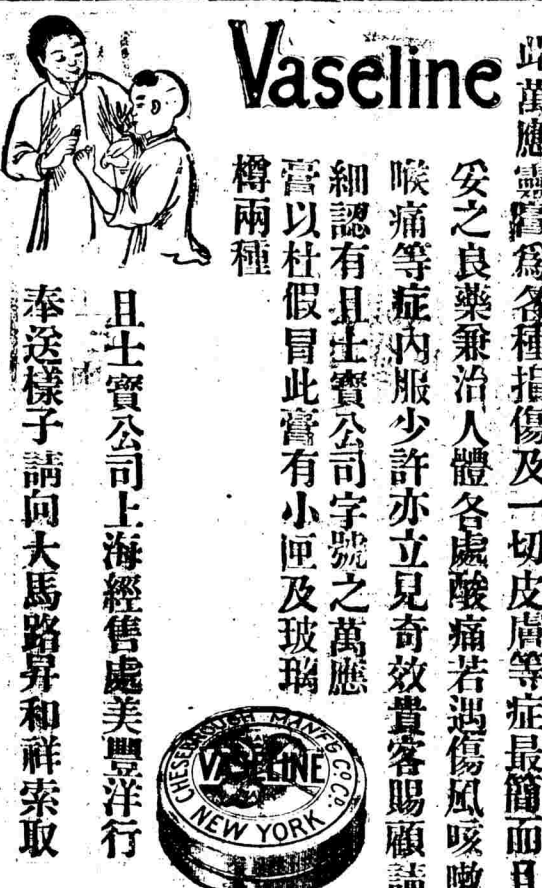 Vaseline
此萬應靈膏為各種損傷及一切皮膚等症最簡而且
妥之良藥兼治人體各處酸痛若遇傷風咳嗽
喉痛等症內服少許亦立見奇效貴客賜顧請
細認有且士寶公司字號之萬應
膏以杜假冒此膏有小匣及玻璃
樽兩種
且士寶公司上海經售處美豐洋行
奉送樣子請向大馬路昇和祥索取
CHESEBROUGH MAN'F'G CO. CO.
VASELINE
NEW YORK